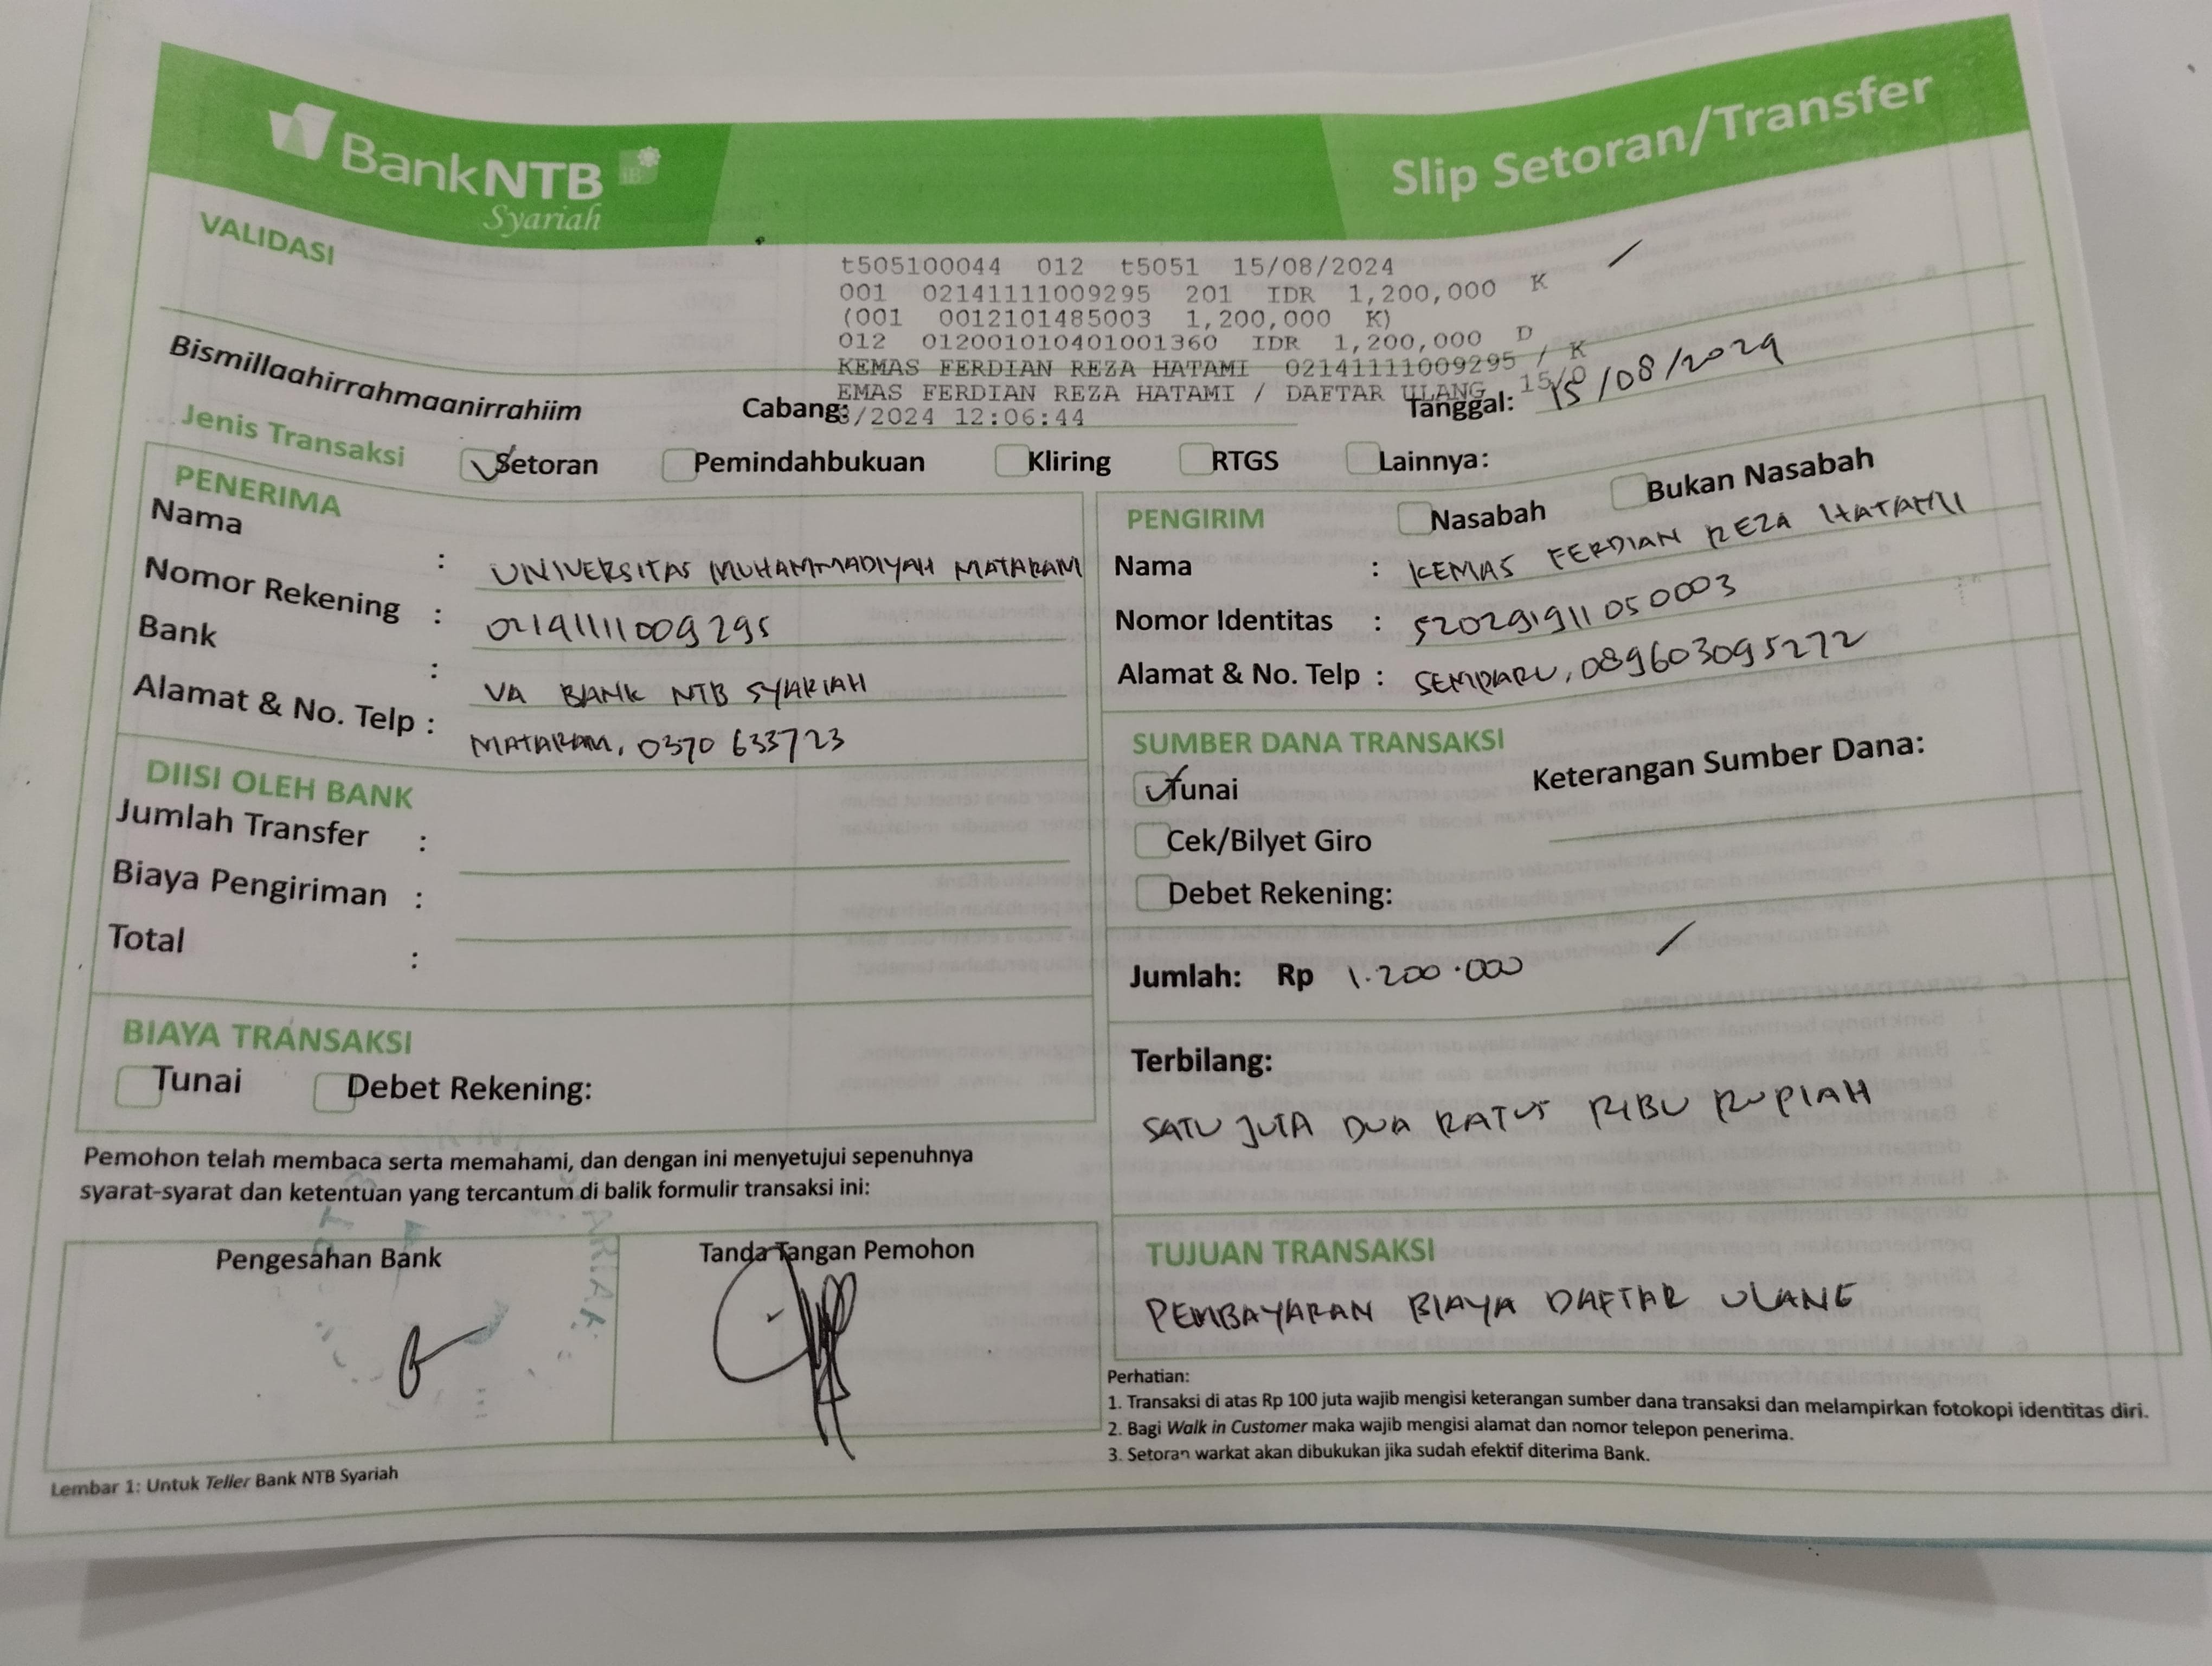 BankNTB
Syariah
Slip Setoran/Transfer
VALIDASI
t505100044 012 t5051 15/08/2024
001 02141111009295 201 IDR 1,200,000 K
(001 0012101485003 1,200,000 K)
012 012001010401001360 IDR 1,200,000 D
KEMAS FERDIAN REZA HATAMI 02141111009295 / K
EMAS FERDIAN REZA HATAMI / DAFTAR ULANG 15/0
8/2024 12:06:44
Bismillaahirrahmaanirrahiim
Cabang:
Tanggal: 15/08/2024
Jenis Transaksi
Setoran
Pemindahbukuan
Kliring
RTGS
Lainnya:
PENERIMA
Nama : UNIVERSITAS MUHAMMADIYAH MATARAM
Nomor Rekening : 02141111009295
Bank : VA BANK NTB SYARIAH
Alamat & No. Telp : MATARAM, 0370 633723
PENGIRIM
Nasabah
Bukan Nasabah
Nama : KEMAS FERDIAN REZA HATAMI
Nomor Identitas : 520291911050003
Alamat & No. Telp : 089603095272
DIISI OLEH BANK
Jumlah Transfer :
Biaya Pengiriman :
Total :
SUMBER DANA TRANSAKSI
Tunai
Cek/Bilyet Giro
Debet Rekening:
Keterangan Sumber Dana:
Jumlah: Rp 1.200.000
BIAYA TRANSAKSI
Tunai
Debet Rekening:
Terbilang:
SATU JUTA DUA RATUS RIBU RUPIAH
Pemohon telah membaca serta memahami, dan dengan ini menyetujui sepenuhnya
syarat-syarat dan ketentuan yang tercantum di balik formulir transaksi ini:
Pengesahan Bank
Tanda Tangan Pemohon
TUJUAN TRANSAKSI
PEMBAYARAN BIAYA DAFTAR ULANG
Perhatian:
1. Transaksi di atas Rp 100 juta wajib mengisi keterangan sumber dana transaksi dan melampirkan fotokopi identitas diri.
2. Bagi Walk in Customer maka wajib mengisi alamat dan nomor telepon penerima.
3. Setoran warkat akan dibukukan jika sudah efektif diterima Bank.
Lembar 1: Untuk Teller Bank NTB Syariah